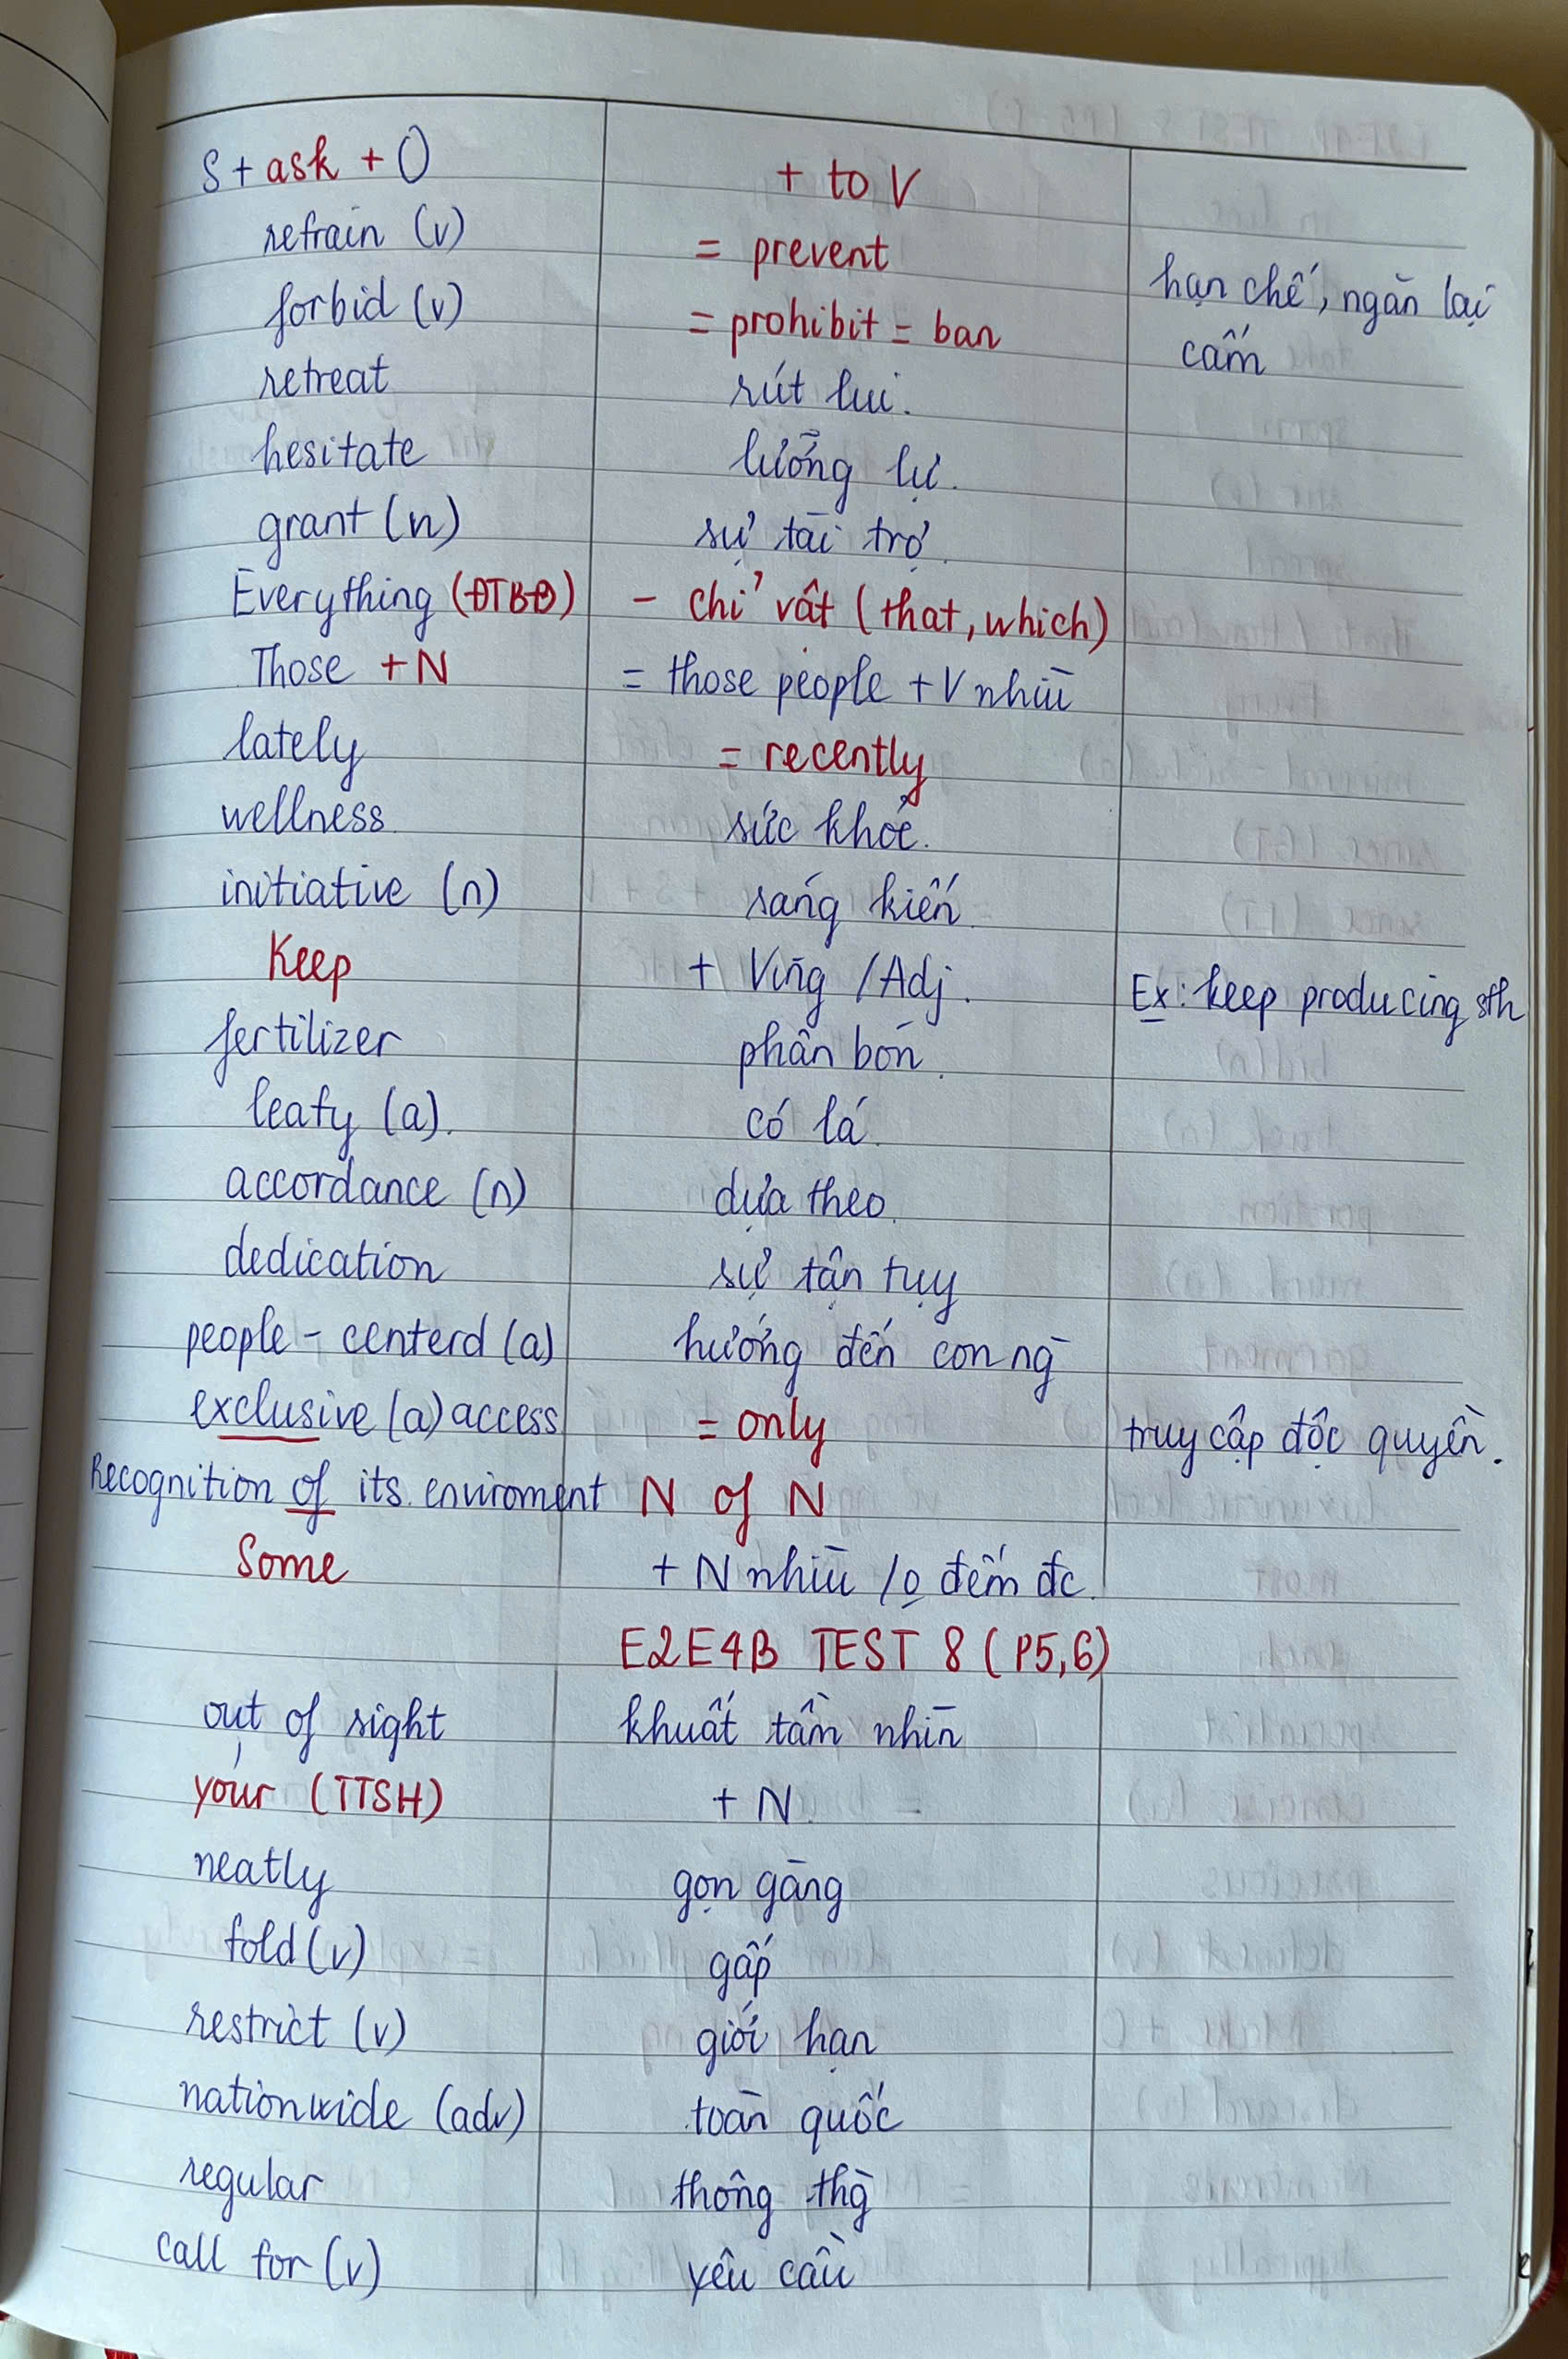 S + ask + O + to V
refrain (v) = prevent hạn chế, ngăn lại
forbid (v) = prohibit = ban cấm
retreat rút lui.
hesitate lưỡng lự.
grant (n) sự tài trợ.
Everything (ĐTBĐ) - chỉ vật (that, which)
Those + N = those people + V nhiù
lately = recently
wellness sức khỏe.
initiative (n) sáng kiến.
Keep + Ving / Adj. Ex: keep producing sth
fertilizer phân bón.
leafy (a). có lá.
accordance (n) dựa theo.
dedication sự tận tụy
people - centerd (a) hướng đến con ng̀
exclusive (a) access = only truy cập độc quyền.
Recognition of its enviroment N of N
Some + N nhiù / o đếm đc.
E2E4B TEST 8 (P5,6)
out of sight khuất tầm nhìn
your (TTSH) + N.
neatly gọn gàng
fold (v) gấp
restrict (v) giới hạn
nationwide (adv) toàn quốc
regular thông thg̀
call for (v) yêu cầu